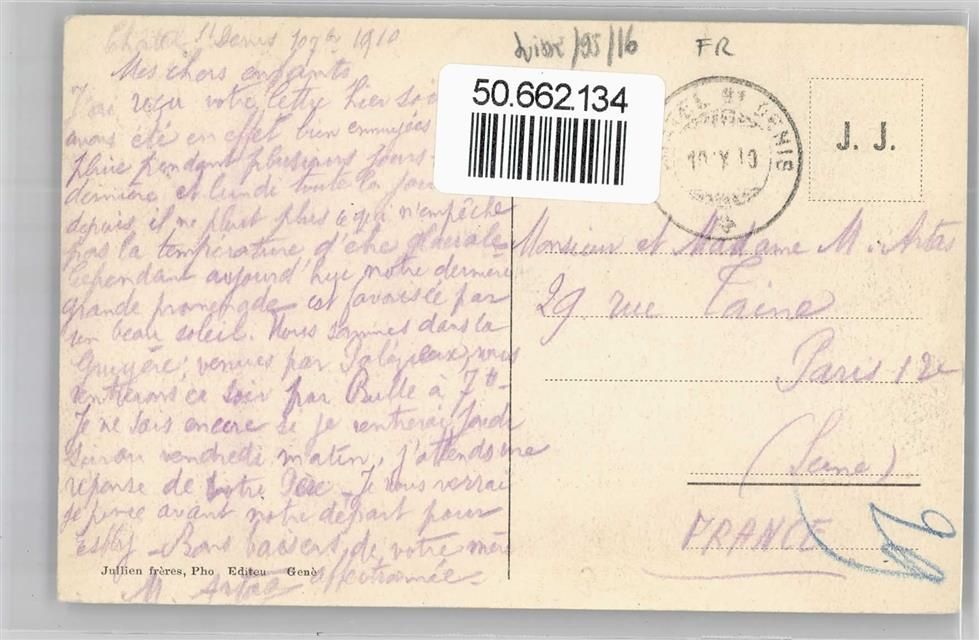 Châtel St Denis 1910
Mes chers enfants
J'ai reçu votre lettre hier
avons été en effet bien ennuyées
pluie pendant plusieurs jours
dernière et lundi toute la
depuis il ne pleut plus ce qui n'empêche
pas la température d'être glaciale
Cependant aujourd'hui notre dernière
grande promenade est favorisée par
un beau soleil. Nous sommes dans la
Gruyère, venues par Palézieux, nous
rentrerons ce soir par Bulle à 7h
Je ne sais encore si je rentrerai jeudi
soir ou vendredi matin, j'attends une
réponse de votre Père - Je vous verrai
je pense avant notre départ pour
Esbly - Bons baisers de votre mère
affectionnée
M. Artas
Jullien frères, Pho Editeu Genè
/95/16
FR
50.662.134
ST DENIS
10 X 10
J. J.
Monsieur et Madame M. Artas
29 rue Taine
Paris 12e
(Seine)
FRANCE